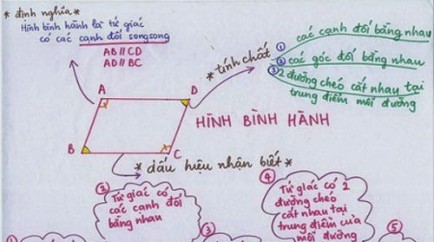 * định nghĩa *
Hình bình hành là tứ giác
có các cạnh đối song song
AB // CD
AD // BC
* tính chất *
① các cạnh đối bằng nhau
② các góc đối bằng nhau
③ 2 đường chéo cắt nhau tại
trung điểm mỗi đường
A
D
B
C
HÌNH BÌNH HÀNH
* dấu hiệu nhận biết *
②
Tứ giác có
các cạnh đối
bằng nhau
③
④
Tứ giác có 2
đường chéo
cắt nhau tại
trung điểm của
mỗi đường
⑤